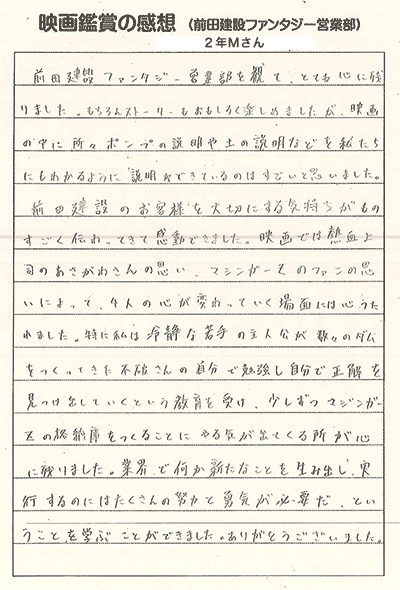 映画鑑賞の感想（前田建設ファンタジー営業部）
２年Mさん
前田建設ファンタジー営業部を観て、とても心に残
りました。もちろんストーリーもおもしろく楽しめましたが、映画
の中に所々ポンプの説明や土の説明などを私たち
にもわかるように説明ができているのはすごいと思いました。
前田建設のお客様を大切にする気持ちがもの
すごく伝わってきて感動できました。映画では熱血上
司のあさがわさんの思い、マジンガーZのファンの思
いによって、4人の心が変わっていく場面には心うた
れました。特に私は冷静な若手の主人公が数々のダム
をつくってきた不破さんの自分で勉強し自分で正解を
見つけ出していくという教育を受け、少しずつマジンガー
Zの格納庫をつくることにやる気が出てくる所が心
に残りました。業界で何か新たなことを生み出し、実
行するのにはたくさんの努力と勇気が必要だ、とい
うことを学ぶことができました。ありがとうございました。